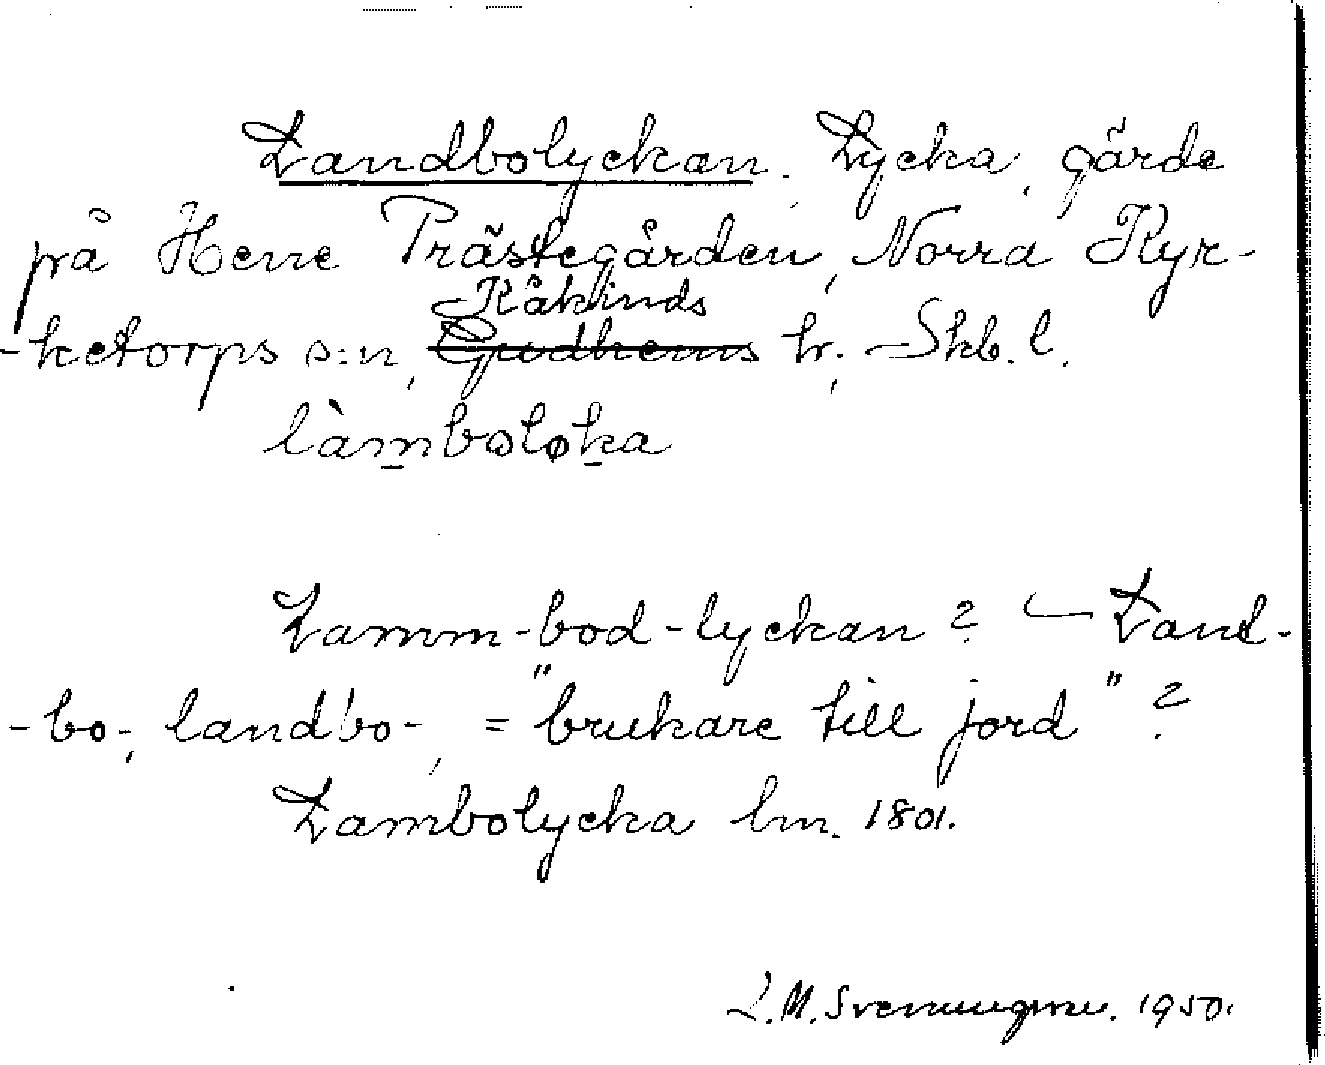 Landbolyckan. Lycka, gärde
på Henne Prästegården, Norra Kyr-
-ketorps s:n, Kåkinds
Gudhems hr. Skb. l.
làmboløka
Lamm-bod-lyckan? Land-
-bo-, landbo-, = "brukare till jord"?
Lambolycka lm. 1801.
L.M. Svenungsson. 1950.